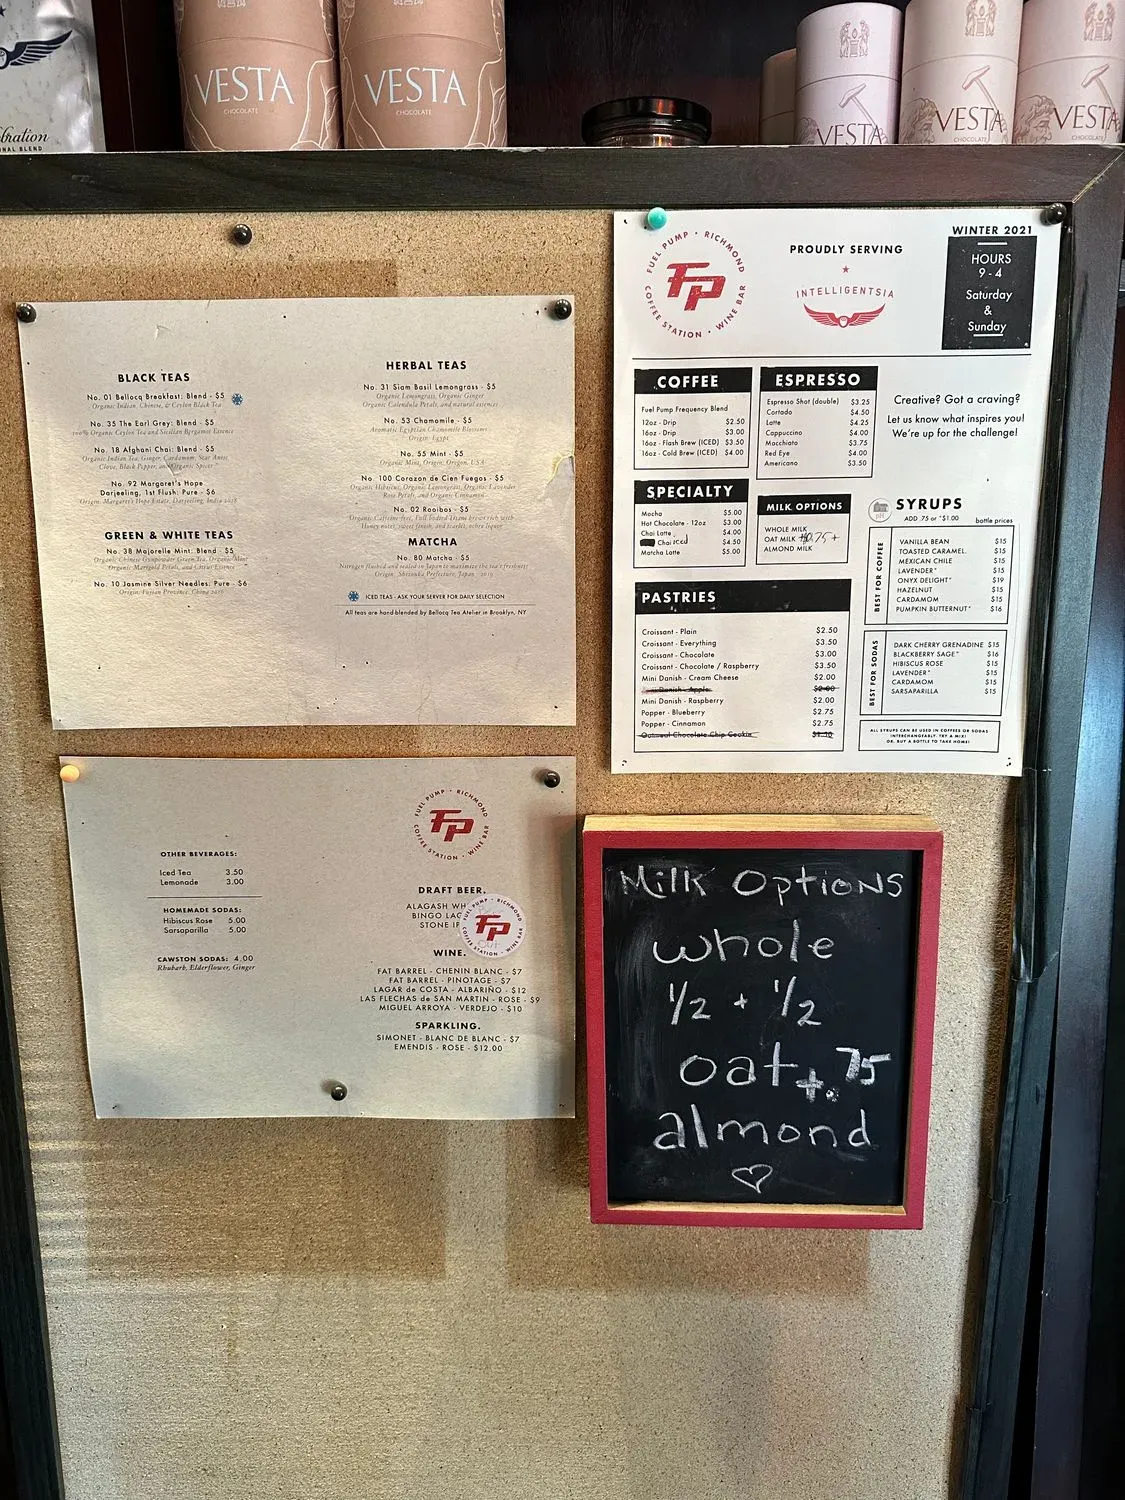 VESTA
CHOCOLATE
VESTA
CHOCOLATE
VESTA
VESTA
CHOCOLATE
VESTA
CHOCOLATE
BLACK TEAS
No. 01 Bellocq Breakfast: Blend - $5
Organic Indian, Chinese, & Ceylon Black Tea
No. 35 The Earl Grey: Blend - $5
100% Organic Ceylon Tea and Sicilian Bergamot Essence
No. 18 Afghani Chai: Blend - $5
Organic Indian Tea, Ginger, Cardamom, Star Anise,
Clove, Black Pepper, and Organic Spices
No. 92 Margaret's Hope
Darjeeling, 1st Flush: Pure - $6
Origin: Margaret's Hope Estate, Darjeeling, India 2018
GREEN & WHITE TEAS
No. 38 Majorelle Mint: Blend - $5
Organic Chinese Gunpowder Green Tea, Organic Mint
Organic Marigold Petals, and Citrus Essence
No. 10 Jasmine Silver Needles: Pure - $6
Origin: Fujian Province, China 2016
HERBAL TEAS
No. 31 Siam Basil Lemongrass - $5
Organic Lemongrass, Organic Ginger
Organic Calendula Petals, and natural essences
No. 53 Chamomile - $5
Aromatic Egyptian Chamomile Blossoms
Origin: Egypt
No. 55 Mint - $5
Organic Mint, Origin: Oregon, USA
No. 100 Corazon de Cien Fuegos - $5
Organic Hibiscus, Organic Lemongrass, Organic Lavender
Rose Petals, and Organic Cinnamon
No. 02 Rooibos - $5
MATCHA
No. 80 Matcha - $5
Nitrogen flushed and sealed in Japan to maximize the tea's freshness
Origin: Shizuoka Prefecture, Japan
ICED TEAS - ASK YOUR SERVER FOR DAILY SELECTION
All teas are hand-blended by Bellocq Tea Atelier in Brooklyn, NY
FUEL PUMP • RICHMOND
FP
COFFEE STATION • WINE BAR
PROUDLY SERVING
INTELLIGENTSIA
WINTER 2021
HOURS
9 - 4
Saturday
&
Sunday
COFFEE
Fuel Pump Frequency Blend
12oz - Drip $2.50
16oz - Drip $3.00
16oz - Flash Brew (ICED) $3.50
16oz - Cold Brew (ICED) $4.00
ESPRESSO
Espresso Shot (double) $3.25
Cortado $4.50
Latte $4.25
Cappuccino $4.00
Macchiato $3.75
Red Eye $4.00
Americano $3.50
Creative? Got a craving?
Let us know what inspires you!
We're up for the challenge!
SPECIALTY
Mocha $5.00
Hot Chocolate - 12oz $3.00
Chai Latte $4.00
Chai Iced $4.50
Matcha Latte $5.00
MILK OPTIONS
WHOLE MILK
OAT MILK
ALMOND MILK
SYRUPS
ADD .75 or *$1.00
bottle prices
BEST FOR COFFEE
VANILLA BEAN $15
TOASTED CARAMEL $15
MEXICAN CHILE $15
LAVENDER* $15
ONYX DELIGHT* $19
HAZELNUT $15
CARDAMOM $15
PUMPKIN BUTTERNUT* $16
BEST FOR SODAS
DARK CHERRY GRENADINE $15
BLACKBERRY SAGE* $16
HIBISCUS ROSE $15
LAVENDER* $15
CARDAMOM $15
SARSAPARILLA $15
ALL SYRUPS CAN BE USED IN COFFEES OR SODAS
INTERCHANGEABLY. TRY A MIX!
OR, BUY A BOTTLE TO TAKE HOME!
PASTRIES
Croissant - Plain $2.50
Croissant - Everything $3.50
Croissant - Chocolate $3.00
Croissant - Chocolate / Raspberry $3.50
Mini Danish - Cream Cheese $2.00
Danish - Apple $2.00
Mini Danish - Raspberry $2.00
Popper - Blueberry $2.75
Popper - Cinnamon $2.75
Oatmeal Chocolate Chip Cookie
OTHER BEVERAGES:
Iced Tea 3.50
Lemonade 3.00
HOMEMADE SODAS:
Hibiscus Rose 5.00
Sarsaparilla 5.00
CAWSTON SODAS: 4.00
Rhubarb, Elderflower, Ginger
FUEL PUMP • RICHMOND
FP
COFFEE STATION • WINE BAR
DRAFT BEER.
ALAGASH WH
BINGO LAG
STONE IP
FUEL PUMP • RICHMOND
FP
COFFEE STATION • WINE BAR
WINE.
FAT BARREL - CHENIN BLANC - $7
FAT BARREL - PINOTAGE - $7
LAGAR de COSTA - ALBARIÑO - $12
LAS FLECHAS de SAN MARTIN - ROSE - $9
MIGUEL ARROYA - VERDEJO - $10
SPARKLING.
SIMONET - BLANC DE BLANC - $7
EMENDIS - ROSE - $12.00
Milk Options
whole
1/2 + 1/2
oat +.75
almond